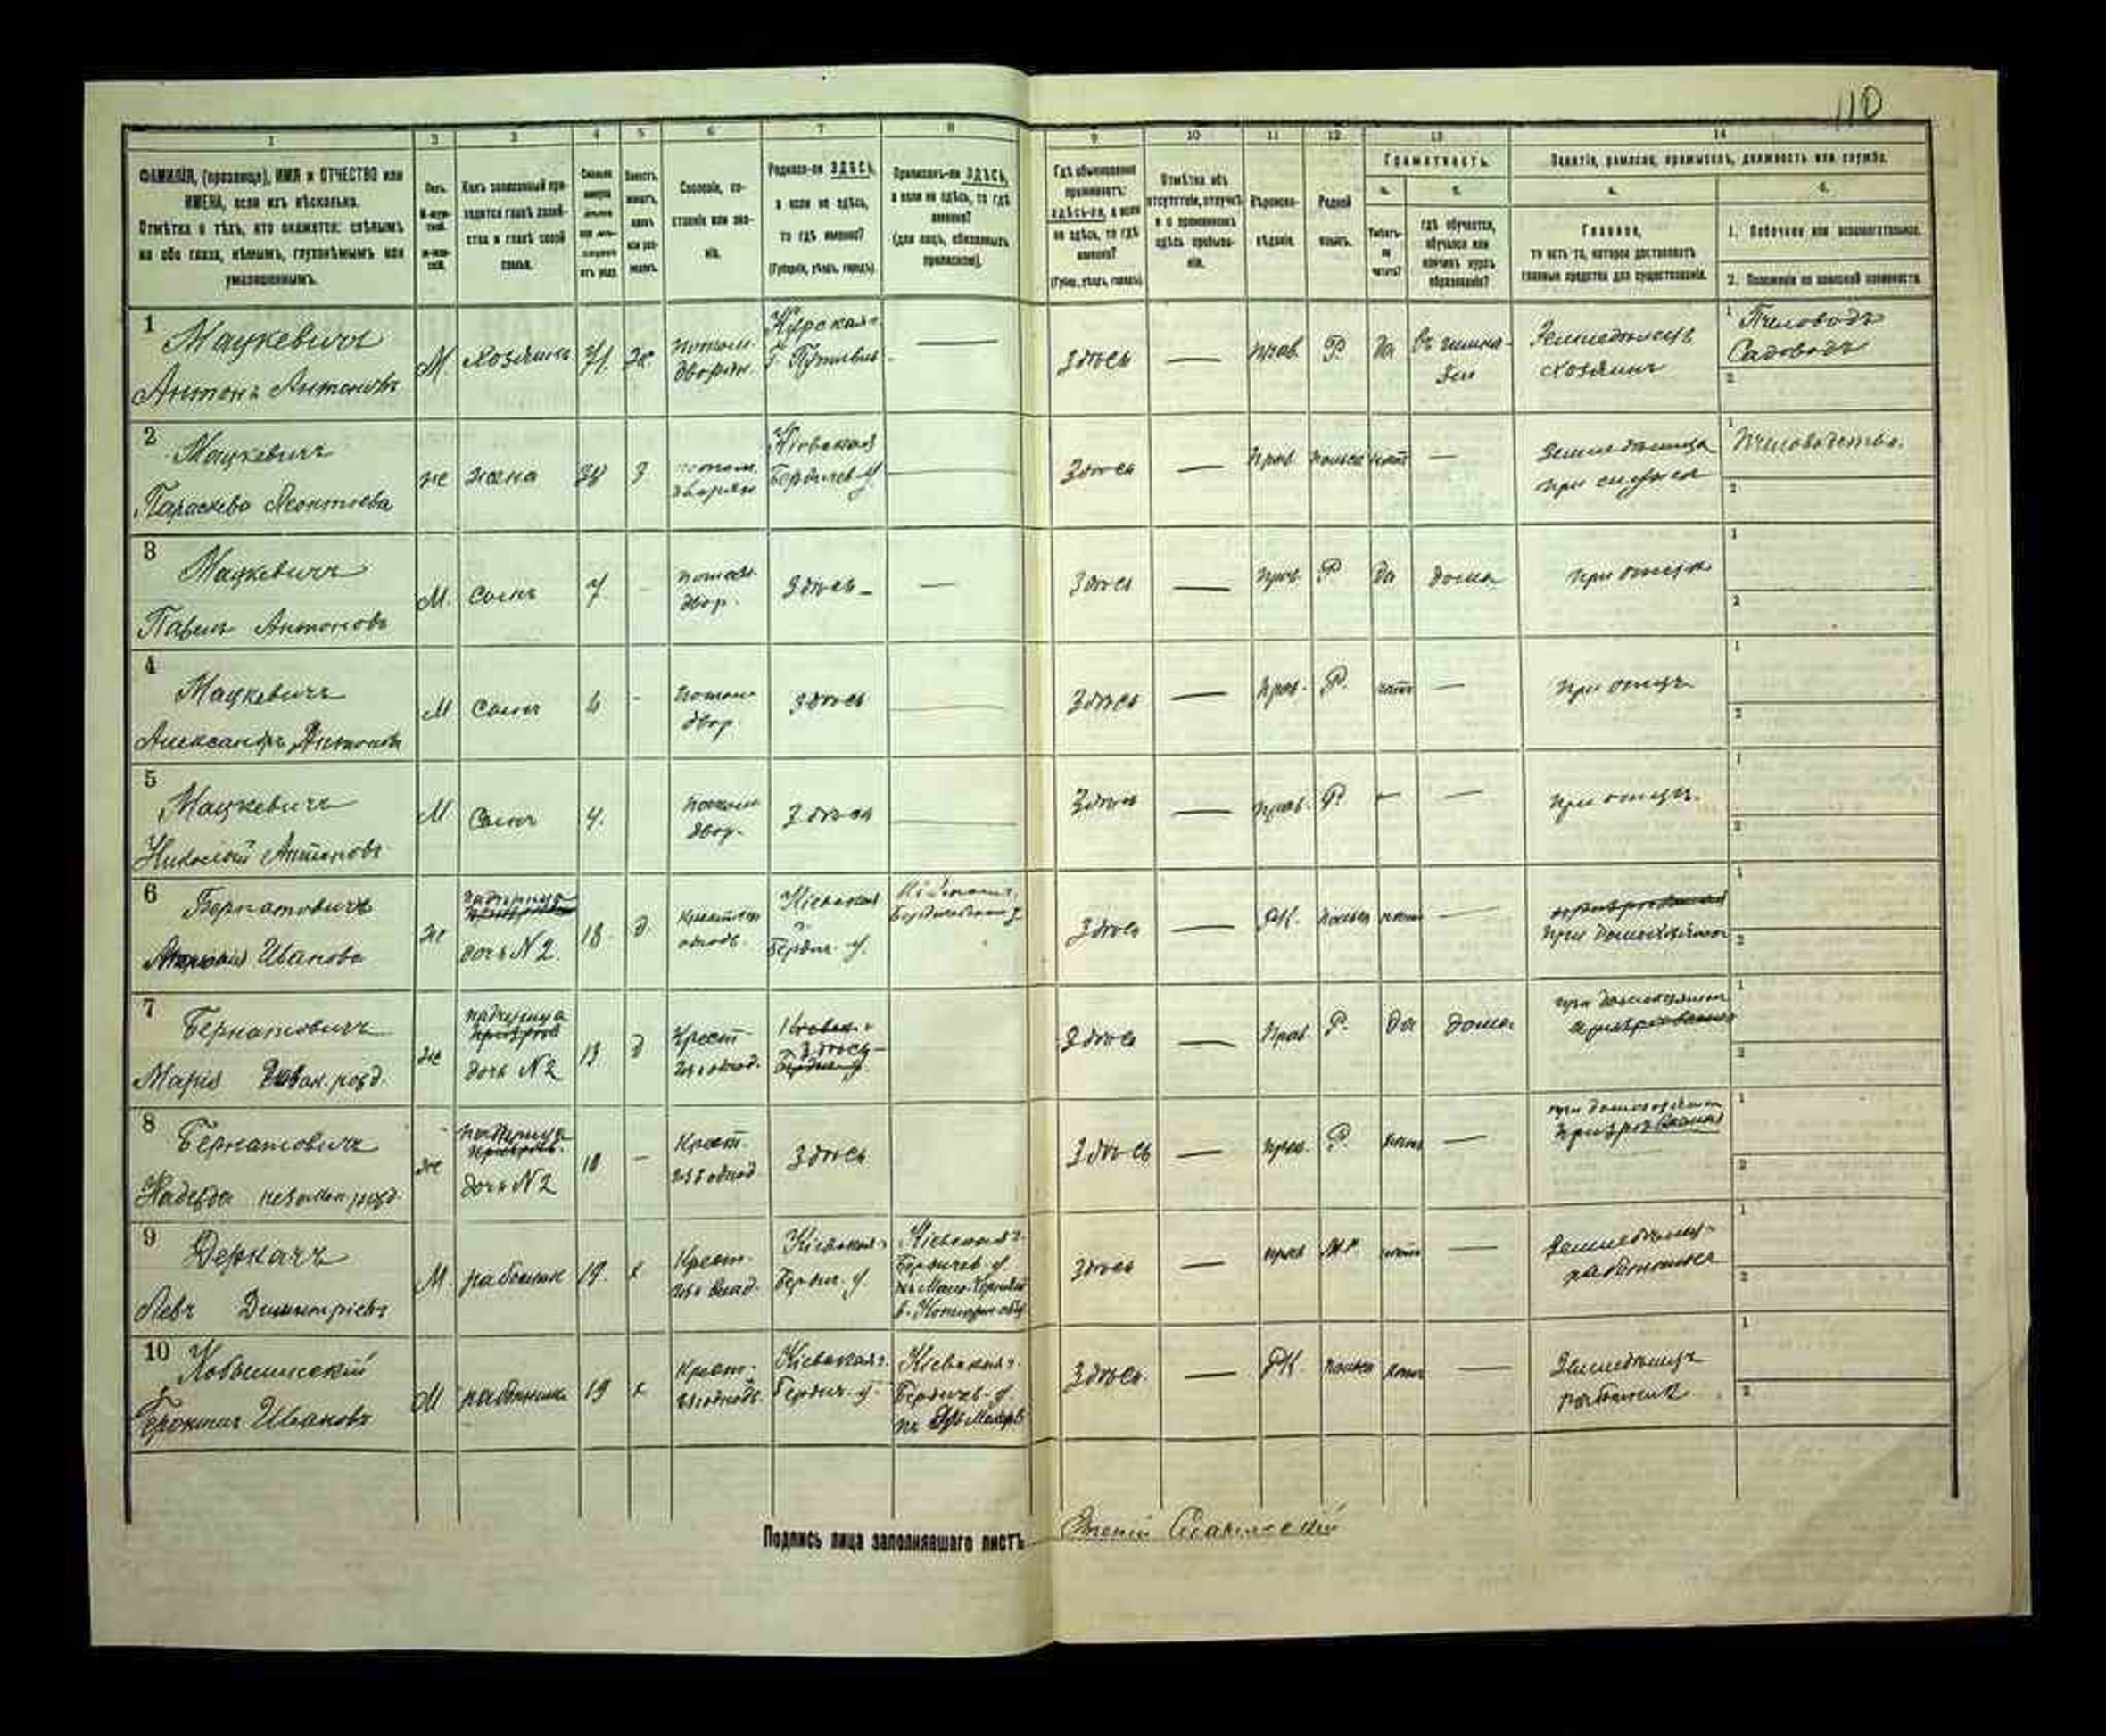 110
1
2
3
4
5
6
7
8
9
10
11
12
13
14
ФАМИЛІЯ, (прозвище), ИМЯ и ОТЧЕСТВО или
ИМЕНА, если ихъ нѣсколько.
Отмѣтка о тѣхъ, кто окажется: слѣпымъ
на оба глаза, нѣмымъ, глухонѣмымъ или
умалишеннымъ.
Полъ.
Какъ записанный при-
ходится главѣ хозяй-
ства и главѣ своей
семьи.
Сословіе, со-
стояніе или зва-
ніе.
Родился-ли ЗДѢСЬ,
а если не здѣсь,
то гдѣ именно?
(Губернія, уѣздъ, городъ)
Приписанъ-ли ЗДѢСЬ,
а если не здѣсь, то гдѣ
именно?
(для лицъ, обязанныхъ
припискою).
Гдѣ обыкновенно
проживаетъ:
здѣсь-ли, а если
не здѣсь, то гдѣ
именно?
(Губер., уѣздъ, городъ)
Отмѣтка объ
отсутствіи, отлучкѣ
и о временномъ
здѣсь пребыва-
ніи.
Вѣроиспо-
вѣданіе.
Родной
языкъ.
Грамотность.
а.
б.
Умѣетъ-
ли
читать?
гдѣ обучается,
обучался или
кончилъ курсъ
образованія?
Занятіе, ремесло, промыселъ, должность или служба.
а.
б.
Главное,
то есть то, которое доставляетъ
главныя средства для существованія.
1. Побочное или вспомогательное.
2. Положеніе по воинской повинности.
1 Мацкевичъ
Антонъ Антоновъ
М
хозяинъ
71
потом.
дворян.
Курская г.
г. Путивль
Здѣсь
прав.
Р
да
въ гимна-
зіи
Земледѣлецъ
хозяинъ
1 Пчеловодъ
Садоводъ
2
2 Мацкевичъ
Параскева Леонтіева
ж
жена
38
З
потом.
дворян.
Кіевская
Бердичев. у.
Здѣсь
прав.
польск
нѣтъ
земледѣлица
1 Пчеловодство.
2
3 Мацкевичъ
Павелъ Антоновъ
М.
сынъ
7
потом.
двор.
Здѣсь
Здѣсь
прав.
Р
да
дома
при отцѣ
1
2
4 Мацкевичъ
Александръ Антоновъ
М
сынъ
6
потом.
двор.
здѣсь
Здѣсь
прав.
Р.
нѣтъ
при отцѣ
1
2
5 Мацкевичъ
Николай Антоновъ
М
Сынъ
4.
потом.
двор.
Здѣсь
Здѣсь
прав.
Р.
при отцѣ.
1
2
6 Бернатовичъ
Иванова
ж
падчерица
дочь N 2.
18
д
Кіевская
Бердич. у.
Здѣсь
РК.
польск
нѣтъ
1
2
7 Бернатовичъ
Марія
ж
падчерица
дочь N 2
13
д
Крест.
изъ однод.
Здѣсь
Здѣсь
прав.
Р.
да
дома
1
2
8 Бернатовичъ
Надежда незакон. рожд.
ж
падчерица
дочь N 2
10
Крест.
изъ однод
Здѣсь
Здѣсь
прав.
Р.
нѣтъ
1
2
9 Деркачъ
Левъ Димитріевъ
М.
работник
19.
х
Крест.
изъ влад.
Кіевская г.
Бердич. у.
Кіевская г.
Бердичев. у.
Здѣсь
прав
М.Р.
нѣтъ
земледѣлец
работникъ
1
2
10
Ивановъ
М
работникъ
19
х
Крест.
изъ однодв.
Кіевская г.
Бердич. у.
Кіевская г.
Бердичев. у.
Здѣсь.
РК.
польск
нѣтъ
Земледѣлецъ
работникъ
1
2
Подпись лица заполнявшаго листъ